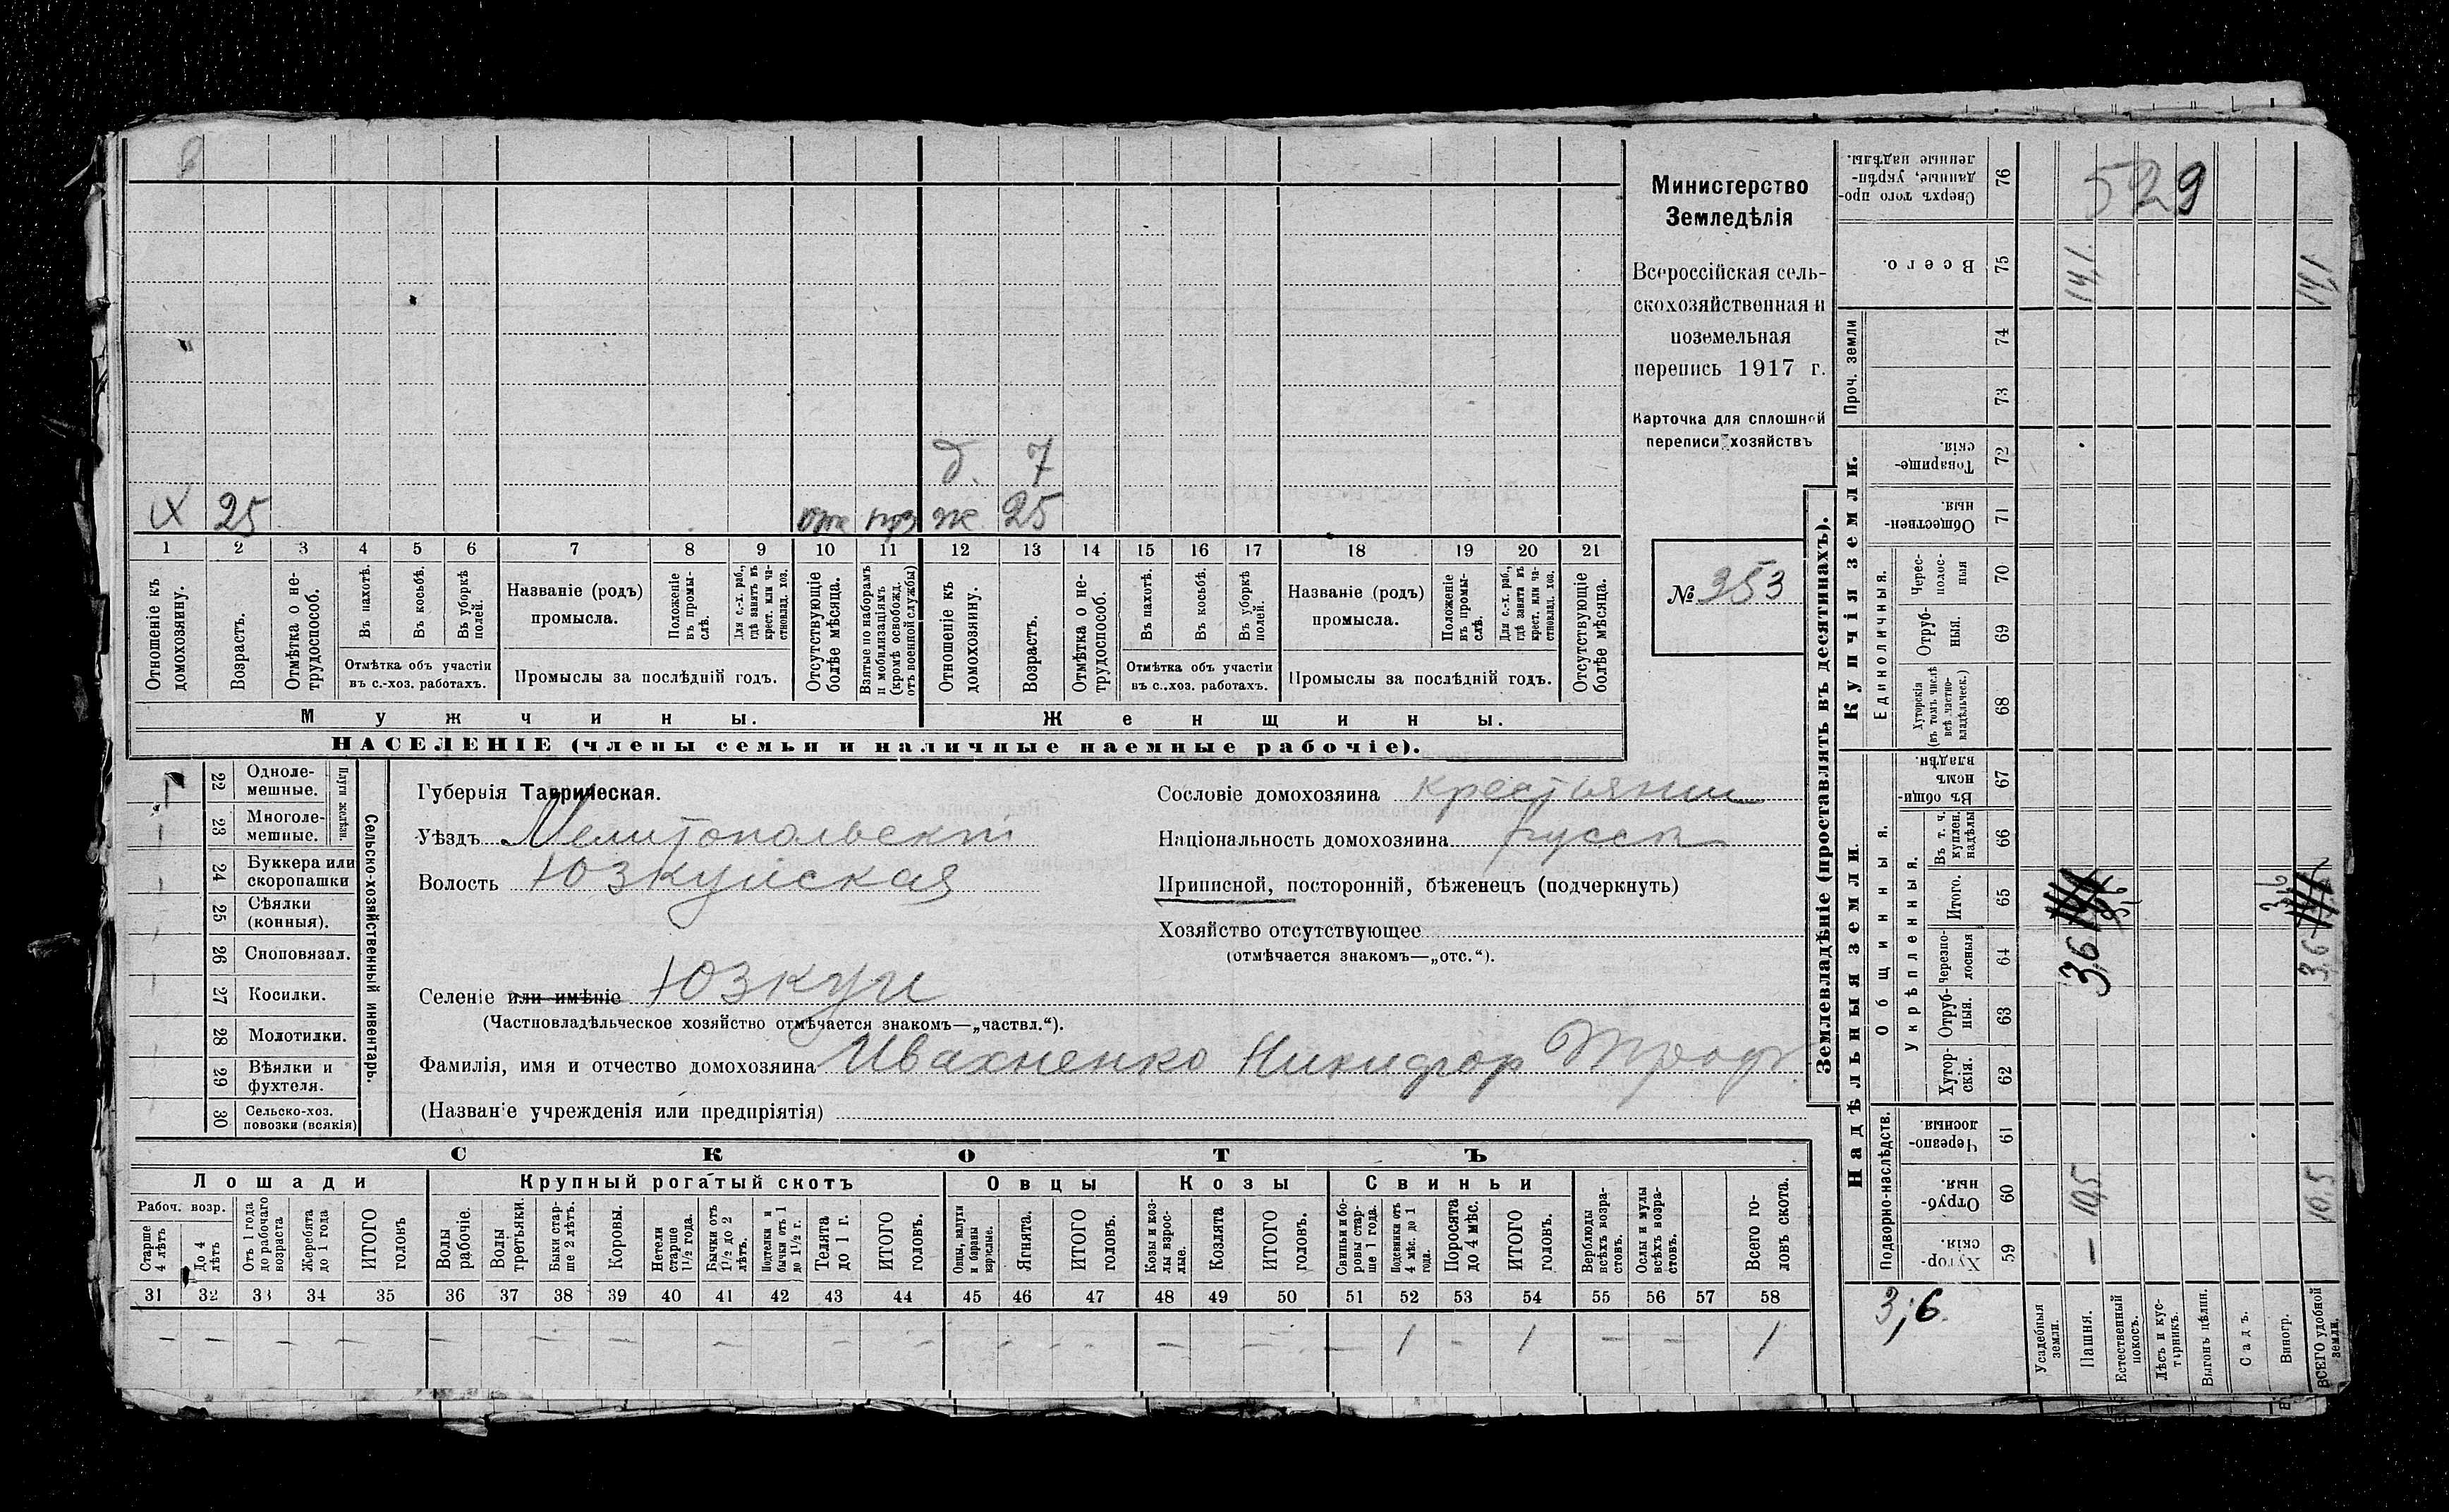 529
Министерство
Земледѣлія
Всероссійская сель-
скохозяйственная и
поземельная
перепись 1917 г.
Карточка для сплошной
переписи хозяйствъ
№ 353
д. 7
X 25 отс ж 25
1 2 3 4 5 6 7 8 9 10 11 12 13 14 15 16 17 18 19 20 21
Отношеніе къ домохозяину.
Возрастъ.
Отмѣтка о не-трудоспособ.
Въ пахотѣ.
Въ косьбѣ.
Въ уборкѣ полей.
Отмѣтка объ участіи
въ с.-хоз. работахъ.
Названіе (родъ)
промысла.
Положеніе въ промы-слѣ.
Для с.-х. раб., гдѣ занятъ въ крест. или ча-стновлад. хоз.
Промыслы за послѣдній годъ.
Отсутствующіе болѣе мѣсяца.
Взятые по наборамъ и мобилизаціямъ (кромѣ освобожд. отъ военной службы)
Отношеніе къ домохозяину.
Возрастъ.
Отмѣтка о не-трудоспособ.
Въ пахотѣ.
Въ косьбѣ.
Въ уборкѣ полей.
Отмѣтка объ участіи
въ с.-хоз. работахъ.
Названіе (родъ)
промысла.
Положеніе въ промы-слѣ.
Для с.-х. раб., гдѣ занята въ крест. или ча-стновлад. хоз.
Промыслы за послѣдній годъ.
Отсутствующіе болѣе мѣсяца.
Мужчины. Женщины.
НАСЕЛЕНІЕ (члены семьи и наличные наемные рабочіе).
22 Однолемешные.
23 Многолемешные.
Плуги желѣзн.
24 Буккера или скоропашки
25 Сѣялки (конныя).
26 Сноповязал.
27 Косилки.
28 Молотилки.
29 Вѣялки и фухтеля.
30 Сельско-хоз. повозки (всякія)
Сельско-хозяйственный инвентарь.
Губернія Таврическая.
Уѣздъ Мелитопольскій
Волость Юзкуйская
Селеніе или имѣніе Юзкуи
(Частновладѣльческое хозяйство отмѣчается знакомъ—„частвл.“).
Фамилія, имя и отчество домохозяина Ивахненко Никифор Троф.
(Названіе учрежденія или предпріятія)
Сословіе домохозяина крестьянин
Національность домохозяина русск
Приписной, посторонній, бѣженецъ (подчеркнуть)
Хозяйство отсутствующее
(отмѣчается знакомъ—„отс.“).
СКОТЪ
Лошади Крупный рогатый скотъ Овцы Козы Свиньи
Рабоч. возр.
Старше 4 лѣтъ
До 4 лѣтъ
Отъ 1 года до рабочаго возраста
Жеребята до 1 года
ИТОГО головъ
Волы рабочіе.
Волы третьяки.
Быки стар-ше 2 лѣтъ.
Коровы.
Нетели старше 1½ года.
Бычки отъ 1½ до 2 лѣтъ.
Подтелки и бычки отъ 1 до 1½ г.
Телята до 1 г.
ИТОГО головъ.
Овцы, валухи и бараны взрослые.
Ягнята.
ИТОГО головъ.
Козы и коз-лы взрос-лые.
Козлята
ИТОГО головъ.
Свиньи и бо-ровы стар-ше 1 года.
Подсвинки отъ 4 мѣс. до 1 года.
Поросята до 4 мѣс.
ИТОГО головъ.
Верблюды всѣхъ возра-стовъ.
Ослы и мулы всѣхъ возра-стовъ.
Всего го-ловъ скота.
31 32 33 34 35 36 37 38 39 40 41 42 43 44 45 46 47 48 49 50 51 52 53 54 55 56 57 58
— — — — — — — — — — — — — — — — — — — — — 1 — 1 — — 1
Землевладѣніе (проставлять въ десятинахъ).
Купчія земли.
Надѣльныя земли.
Сверхъ того про-данные, укрѣп-ленные надѣлы. 76
Всего. 75 14,1. 14,1
Проч. земли 74 73
Товарище-скія. 72
Обществен-ныя. 71
Единоличныя.
Черес-полос-ныя 70
Отруб-ныя. 69
Хуторскія (въ томъ числѣ всѣ частно-владѣльческ.) 68
Общинныя.
Въ общин-номъ владѣн. 67
Укрѣпленныя.
Въ т. ч. куплен. надѣлы 66
Итого. 65 3,6 3,6
Черезпо-лосныя 64 3,6 3,6
Отруб-ныя. 63
Хутор-скія. 62
Подворно-наслѣдств.
Черезпо-лосныя. 61
Отруб-ныя. 60 10,5 10,5
Хутор-скія. 59 —
3,6.
Усадебныя земли.
Пашня.
Естественный покосъ.
Лѣсъ и кус-тарникъ.
Выгонъ цѣлин.
Садъ.
Виногр.
ВСЕГО удобной земли.